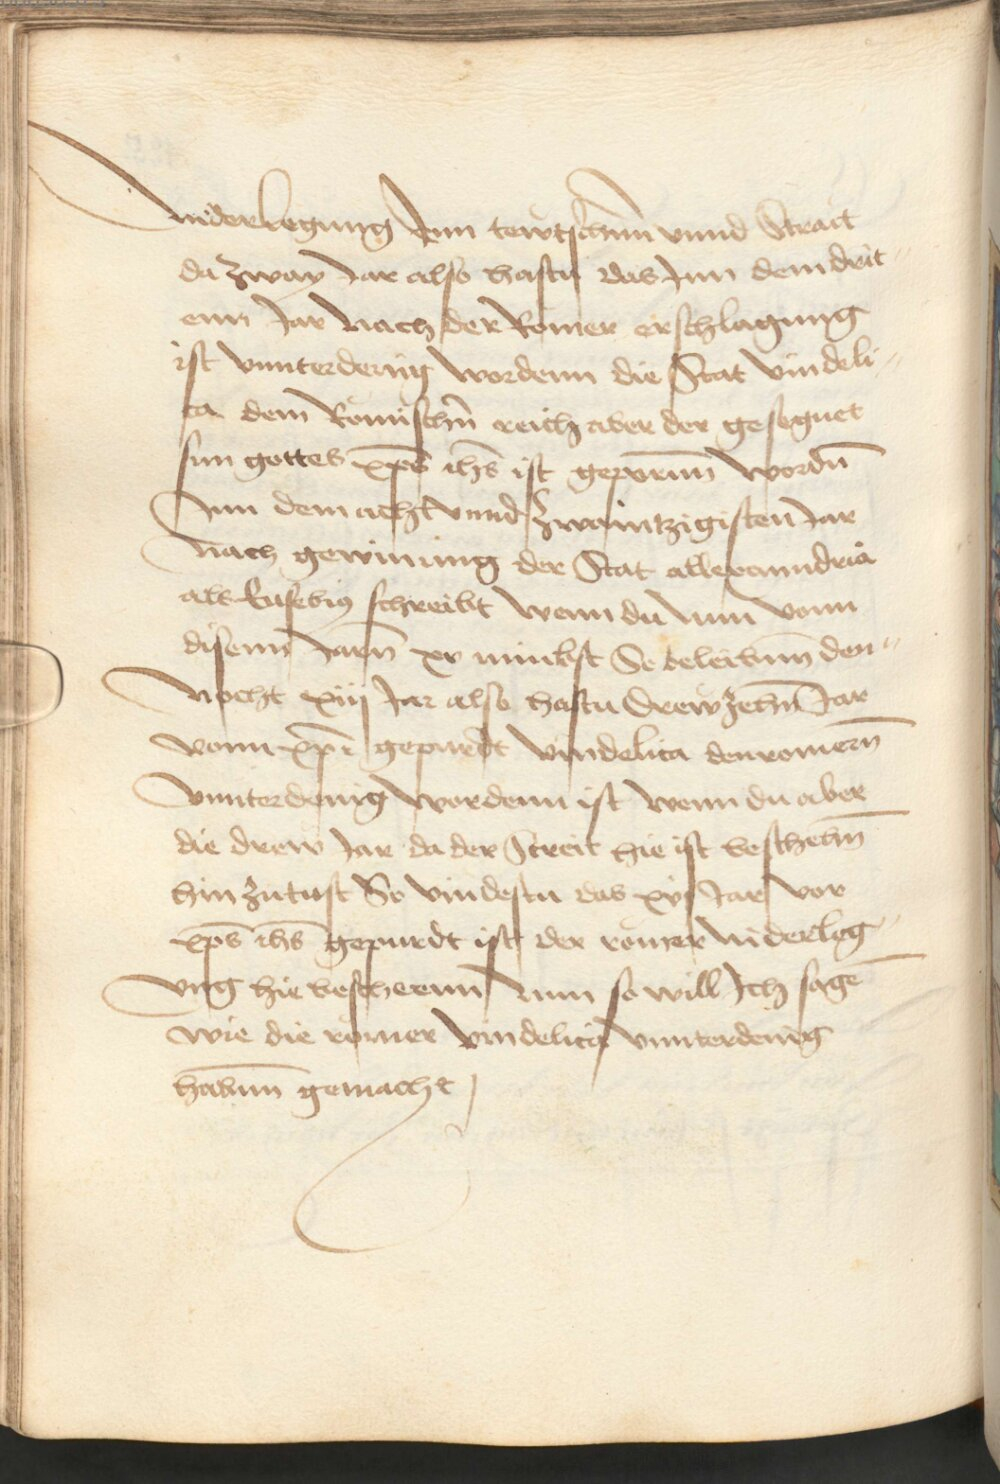 Niderlegung Jnn tewtschm̄ vnnd Strait
da zway Jar also hastu das Jnn dem drit-
enn Jar Nach der Römer erschlagung
ist vnnterdenig wordenn die Stat vindeli-
ca dem Römischn̄ reich aber der gesegnet
sun gottes xp̄s ih̄s ist gepornn̄ wordn̄
Jnn dem acht vnnd zwaintzigisten Jar
Nach gewinung der Stat allexanndria
als Eusebius schreibt Wenn du Nun vonn
disenn Jarn̄ xv nimbst So beleibnn̄ den-
Nocht xiij Jar also hastu drewzehn̄ Jar
vonn xp̄i gepurdt vindelica den romern̄
vnnterdenig wordenn ist Wenn du aber
die drew Jar da der Streit hie ist beschehn̄
hin zutust So vindestu das xvj Jar vor
xp̄s ih̄s gepurdt ist der römer Niderleg-
ung hie beschehenn Nun so will Jch sagē
wie die römer vindelica vnnterdenig
habnn̄ gemacht